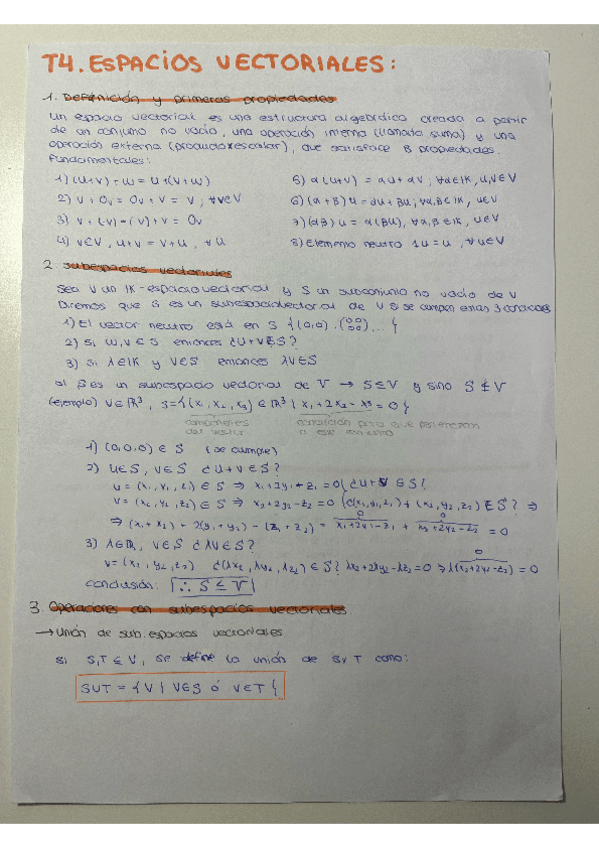 T4. ESPACIOS VECTORIALES:
1. Definición y primeras propiedades
Un espacio vectorial es una estructura algebráica creada a partir
de un conjunto no vacío, una operación interna (llamada suma) y una
operación externa (producto x escalar), que satisface 8 propiedades.
Fundamentales:
1) (u+v)+w = u+(v+w)
5) α(u+v) = αu+αv ; ∀α∈K, u,v∈V
2) v+0v = 0v+v = v ; ∀v∈V
6) (α+β)u = αu+βu ; ∀α,β∈K, u∈V
3) v+(-v)=(-v)+v = 0v
7) (αβ)u = α(βu), ∀α,β∈K, u∈V
4) v∈V, u+v = v+u, ∀u
8) Elemento neutro 1u=u, ∀u∈V
2. Subespacios vectoriales
Sea V un K-espacio vectorial y S un subconjunto no vacío de V
Diremos que S es un subespacio vectorial de V si se cumplen estas 3 condiciones
1) El vector neutro está en S {(0,0), (0 0 0 0), ... {
2) Si u,v∈S entonces ¿u+v∈S?
3) Si λ∈K y v∈S entonces λv∈S
Si S es un subespacio vectorial de V → S≤V y sino S≰V
(ejemplo) V∈ℝ³, S={(x₁, x₂, x₃)∈ℝ³ | x₁+2x₂-x₃=0{
componentes condición para que pertenezcan
del vector a este conjunto
1) (0,0,0)∈S (se cumple)
2) u∈S, v∈S ¿u+v∈S?
u=(x₁, y₁, z₁)∈S ⇒ x₁+2y₁-z₁=0 ¿u+v∈S?
v=(x₂, y₂, z₂)∈S ⇒ x₂+2y₂-z₂=0 ¿(x₁,y₁,z₁)+(x₂,y₂,z₂)∈S? ⇒
0 0
⇒ (x₁+x₂)+2(y₁+y₂)-(z₁+z₂) = x₁+2y₁-z₁ + x₂+2y₂-z₂ = 0
3) λ∈ℝ, v∈S ¿λv∈S?
0
v=(x₂, y₂, z₂) ¿(λx₂, λy₂, λz₂)∈S? λx₂+2λy₂-λz₂=0 ⇒ λ(x₂+2y₂-z₂)=0
conclusión: ∴ S≤V
3. Operaciones con subespacios vectoriales
→ Unión de sub.espacios vectoriales
Si S,T≤V, se define la unión de S y T como:
SUT = {V | V∈S ó V∈T{